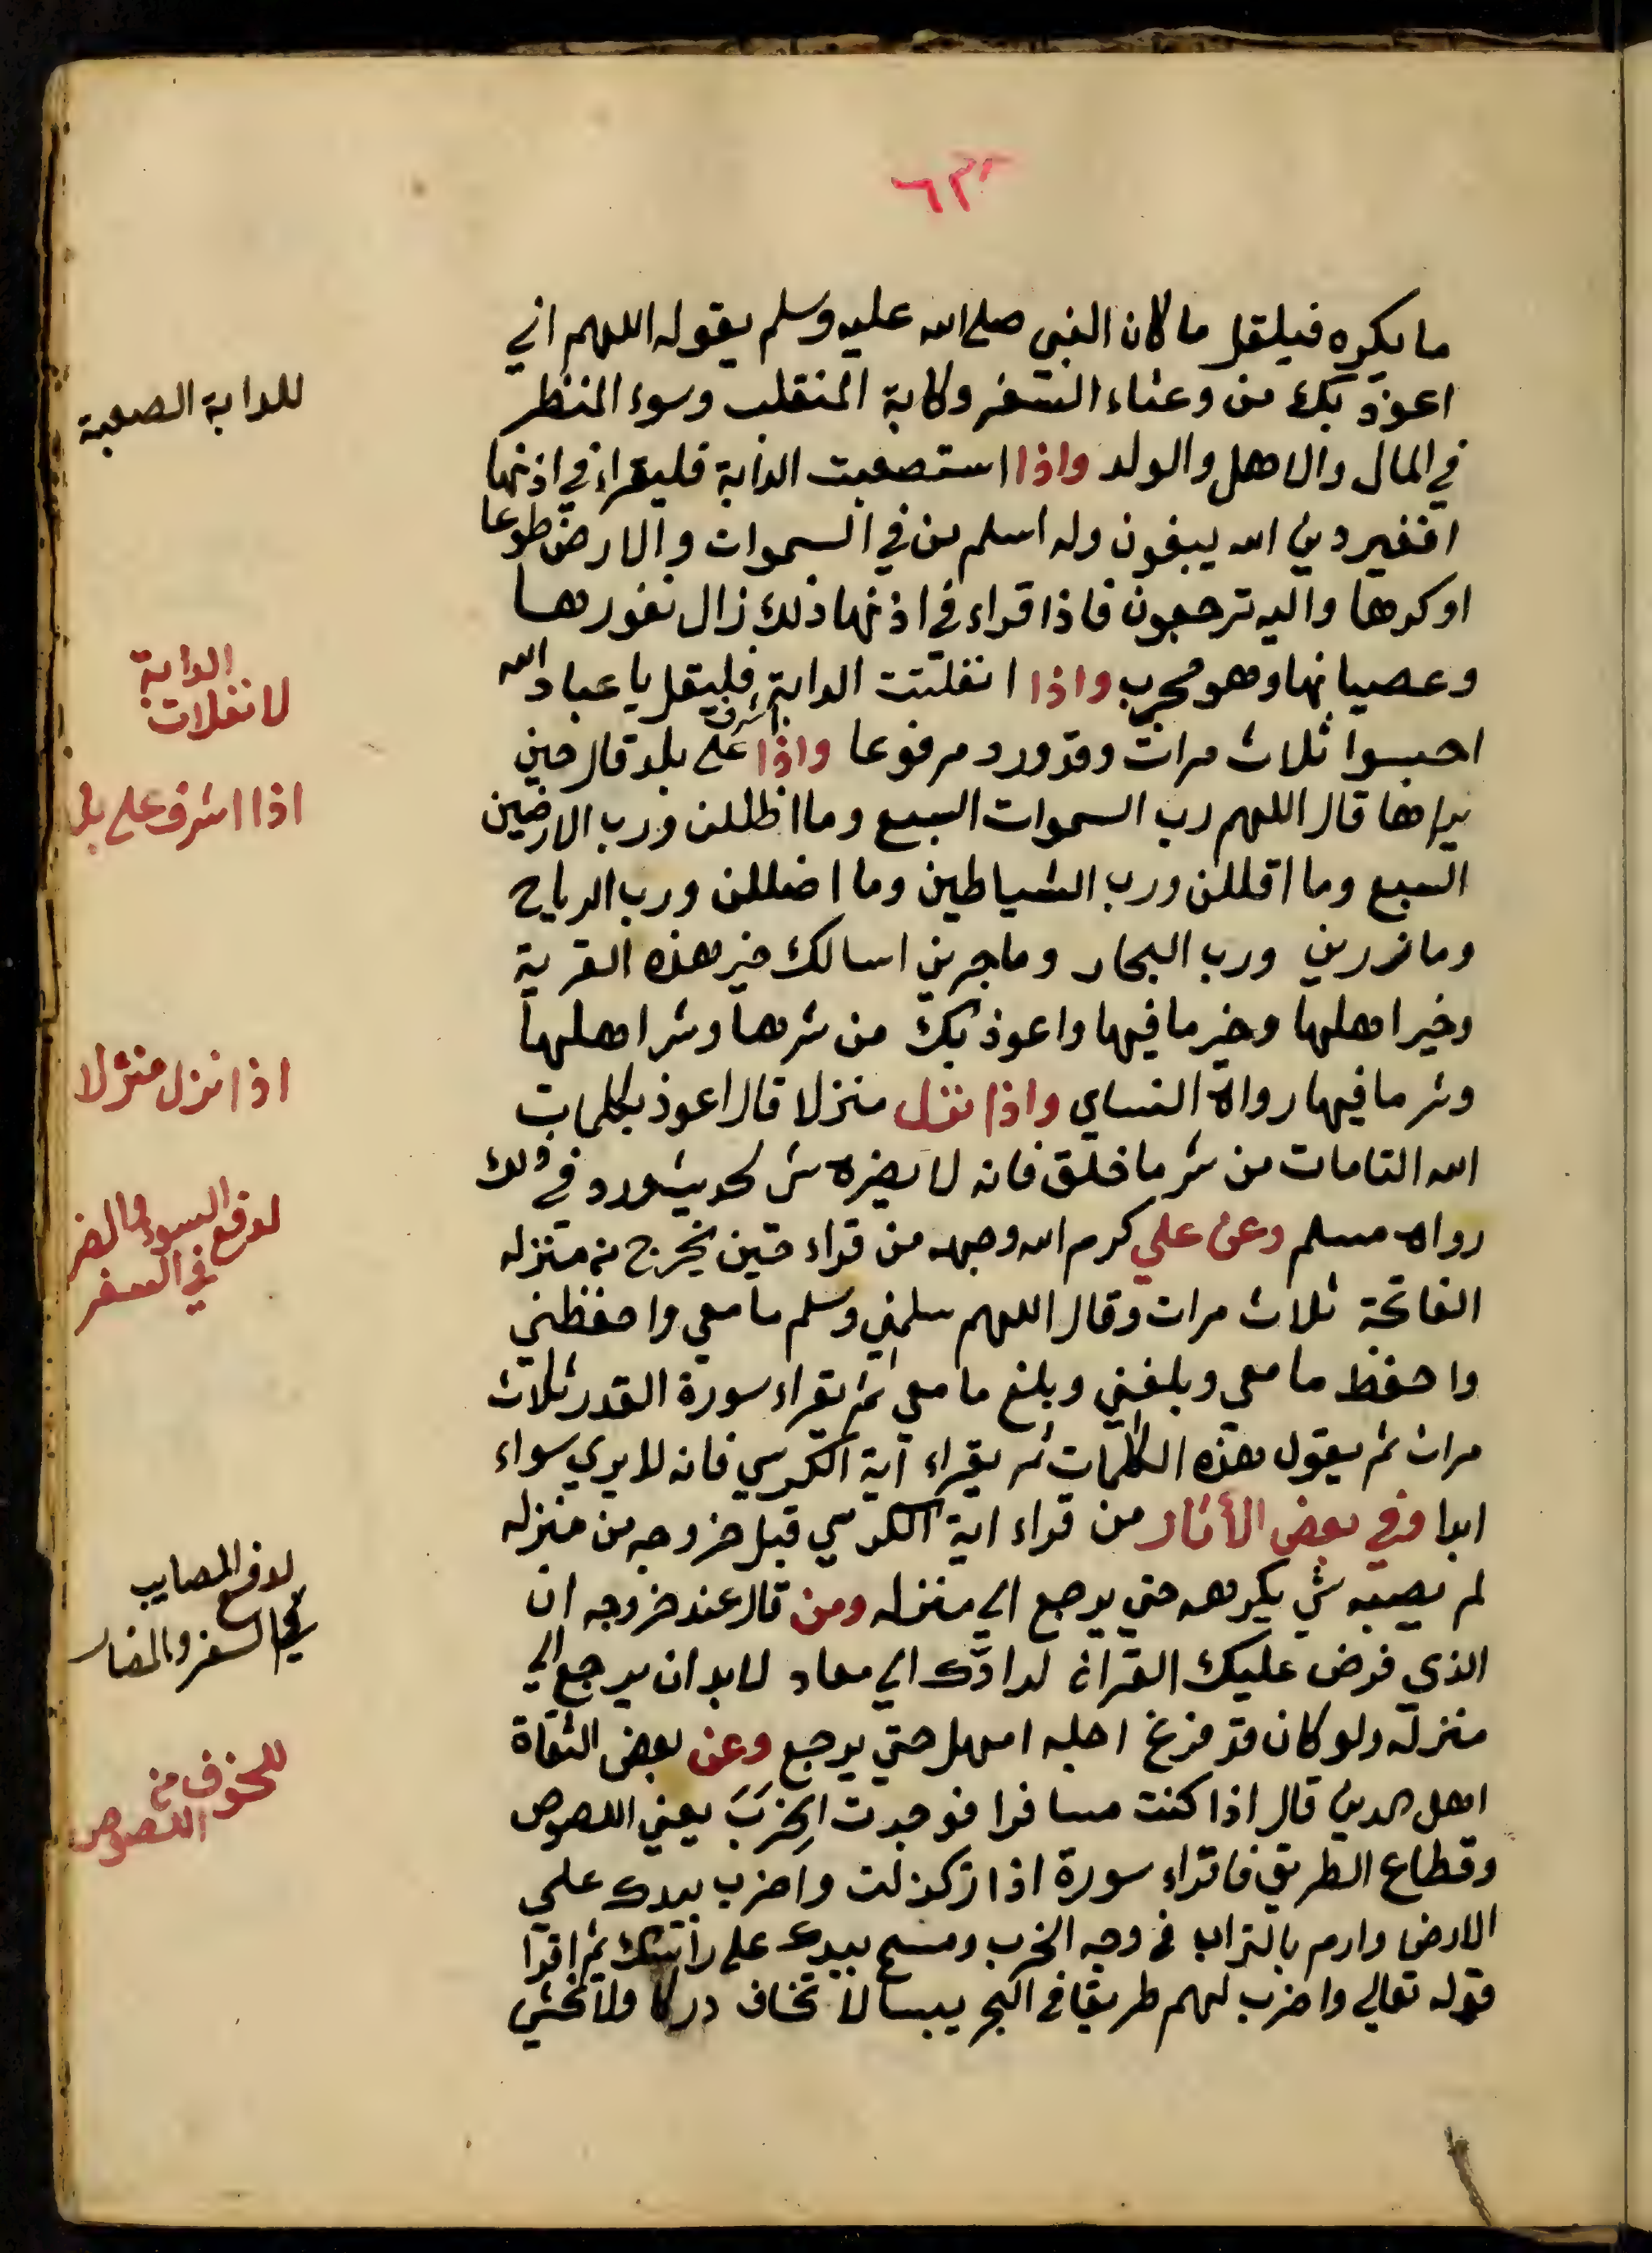 ٦٣
ما يكره فيلقل ما كان النبي صلى الله عليه وسلم يقوله اللهم اني
اعوذ بك من وعثاء السفر وكابة المنقلب وسوء المنظر
في المال والاهل والولد واذا استصعبت الدابة فليقراء في اذنها
افغير دين الله يبغون وله اسلم من في السموات والارض طوعا
اوكرها واليه ترجعون فاذا قراء في اذنها ذلك زال نفورها
وعصيانها وهو مجرب واذا انفلتت الدابة فليقل يا عباد الله
احبسوا ثلاث مرات وقد ورد مرفوعا واذا اشرف على بلد قال حين
يراها قال اللهم رب السموات السبع وما اظللن ورب الارضين
السبع وما اقللن ورب الشياطين وما اضللن ورب الرياح
وما ذررين ورب البحار وما جرين اسالك خير هذه القرية
وخير اهلها وخير ما فيها واعوذ بك من شرها وشر اهلها
وشر ما فيها رواه النساي واذا نزل منزلا قال اعوذ بكلمات
الله التامات من شر ما خلق فانه لا يضره شي لحديث ورد في ذلك
رواه مسلم وعن علي كرم الله وجهه من قراء حين يخرج من منزله
الفاتحة ثلاث مرات وقال اللهم سلمني وسلم ما معي واحفظني
واحفظ ما معي وبلغني وبلغ ما معي ثم يقراء سورة القدر ثلاث
مرات ثم يقول هذه الكلمات ثم يقراء آية الكرسي فانه لا يري سواء
ابدا وفي بعض الأثار من قراء اية الكرسي قبل خروجه من منزله
لم يصبه شي يكرهه حتي يرجع الي منزله ومن قال عند خروجه ان
الذي فرض عليك القران لرادّك الي معاد لابد ان يرجع الي
منزله ولو كان قد فرغ اجله امهل حتي يرجع وعن بعض الثقاة
اهل الدين قال اذا كنت مسافرا فوجدت الخِرَبَ يعني اللصوص
وقطاع الطريق فاقراء سورة اذا زلزلت واضرب بيدك علي
الارض وارم بالتراب في وجه الخرب ومسح بيدك على راسك ثم اقرا
قوله تعالي واضرب لهم طريقا في البحر يبسا لا تخاف دركا ولا تخشي
للدابة الصعبة
الدابة
لانفلات
اذا اشرف على بلد
اذا نزل منزلا
لدفع السوء والضر
في السفر
لدفع المصايب
في السفر والمضار
للخوف من
اللصوص